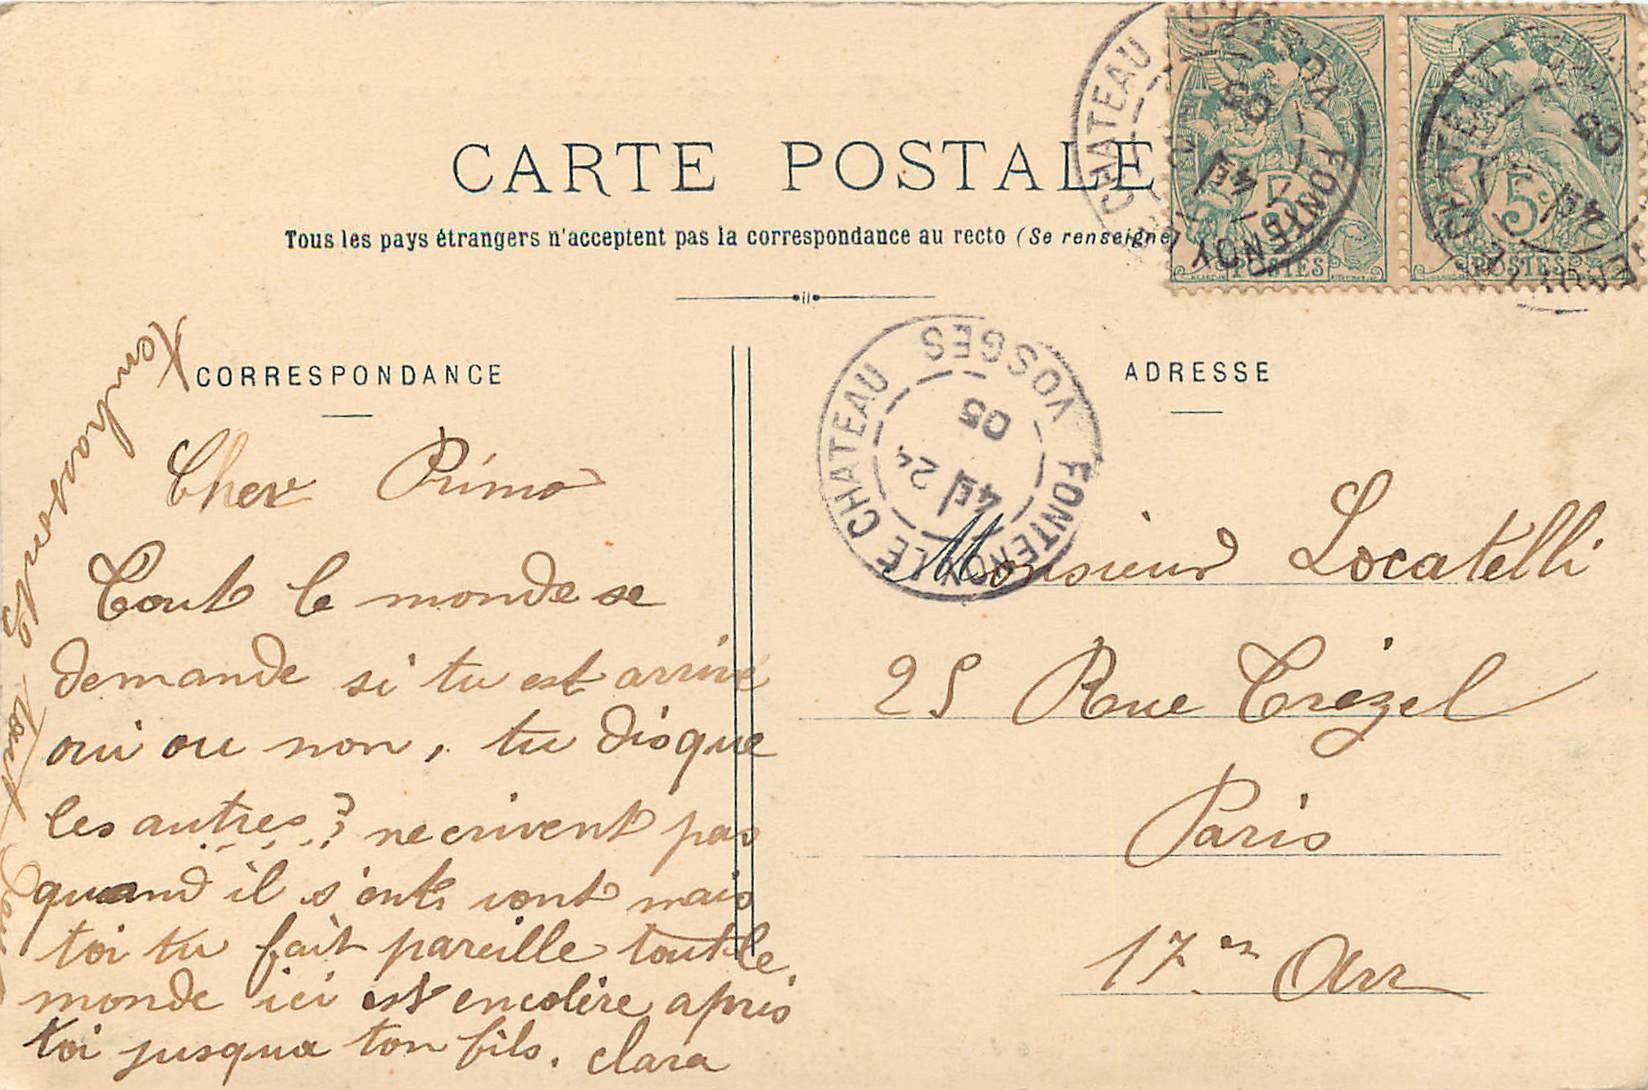 CARTE POSTALE
Tous les pays étrangers n'acceptent pas la correspondance au recto (Se renseigne
CORRESPONDANCE
ADRESSE
Cher Primo
Tout le monde se
demande si tu est arrivé
oui ou non, tu dis que
les autres? necrivent pas
quand il s'ent vont mais
toi tu fait pareille tout le
monde ici est encolère après
toi jusqua ton fils. Clara
tout
Monsieur Locatelli
25 Rue Trézel
Paris
17 en Arr
FONTENOY LE CHATEAU VOSGES
4E 24
05
CHATEAU
FONTENOY
4E
5
POSTES
CHATEAU
05
4E
5c
POSTES